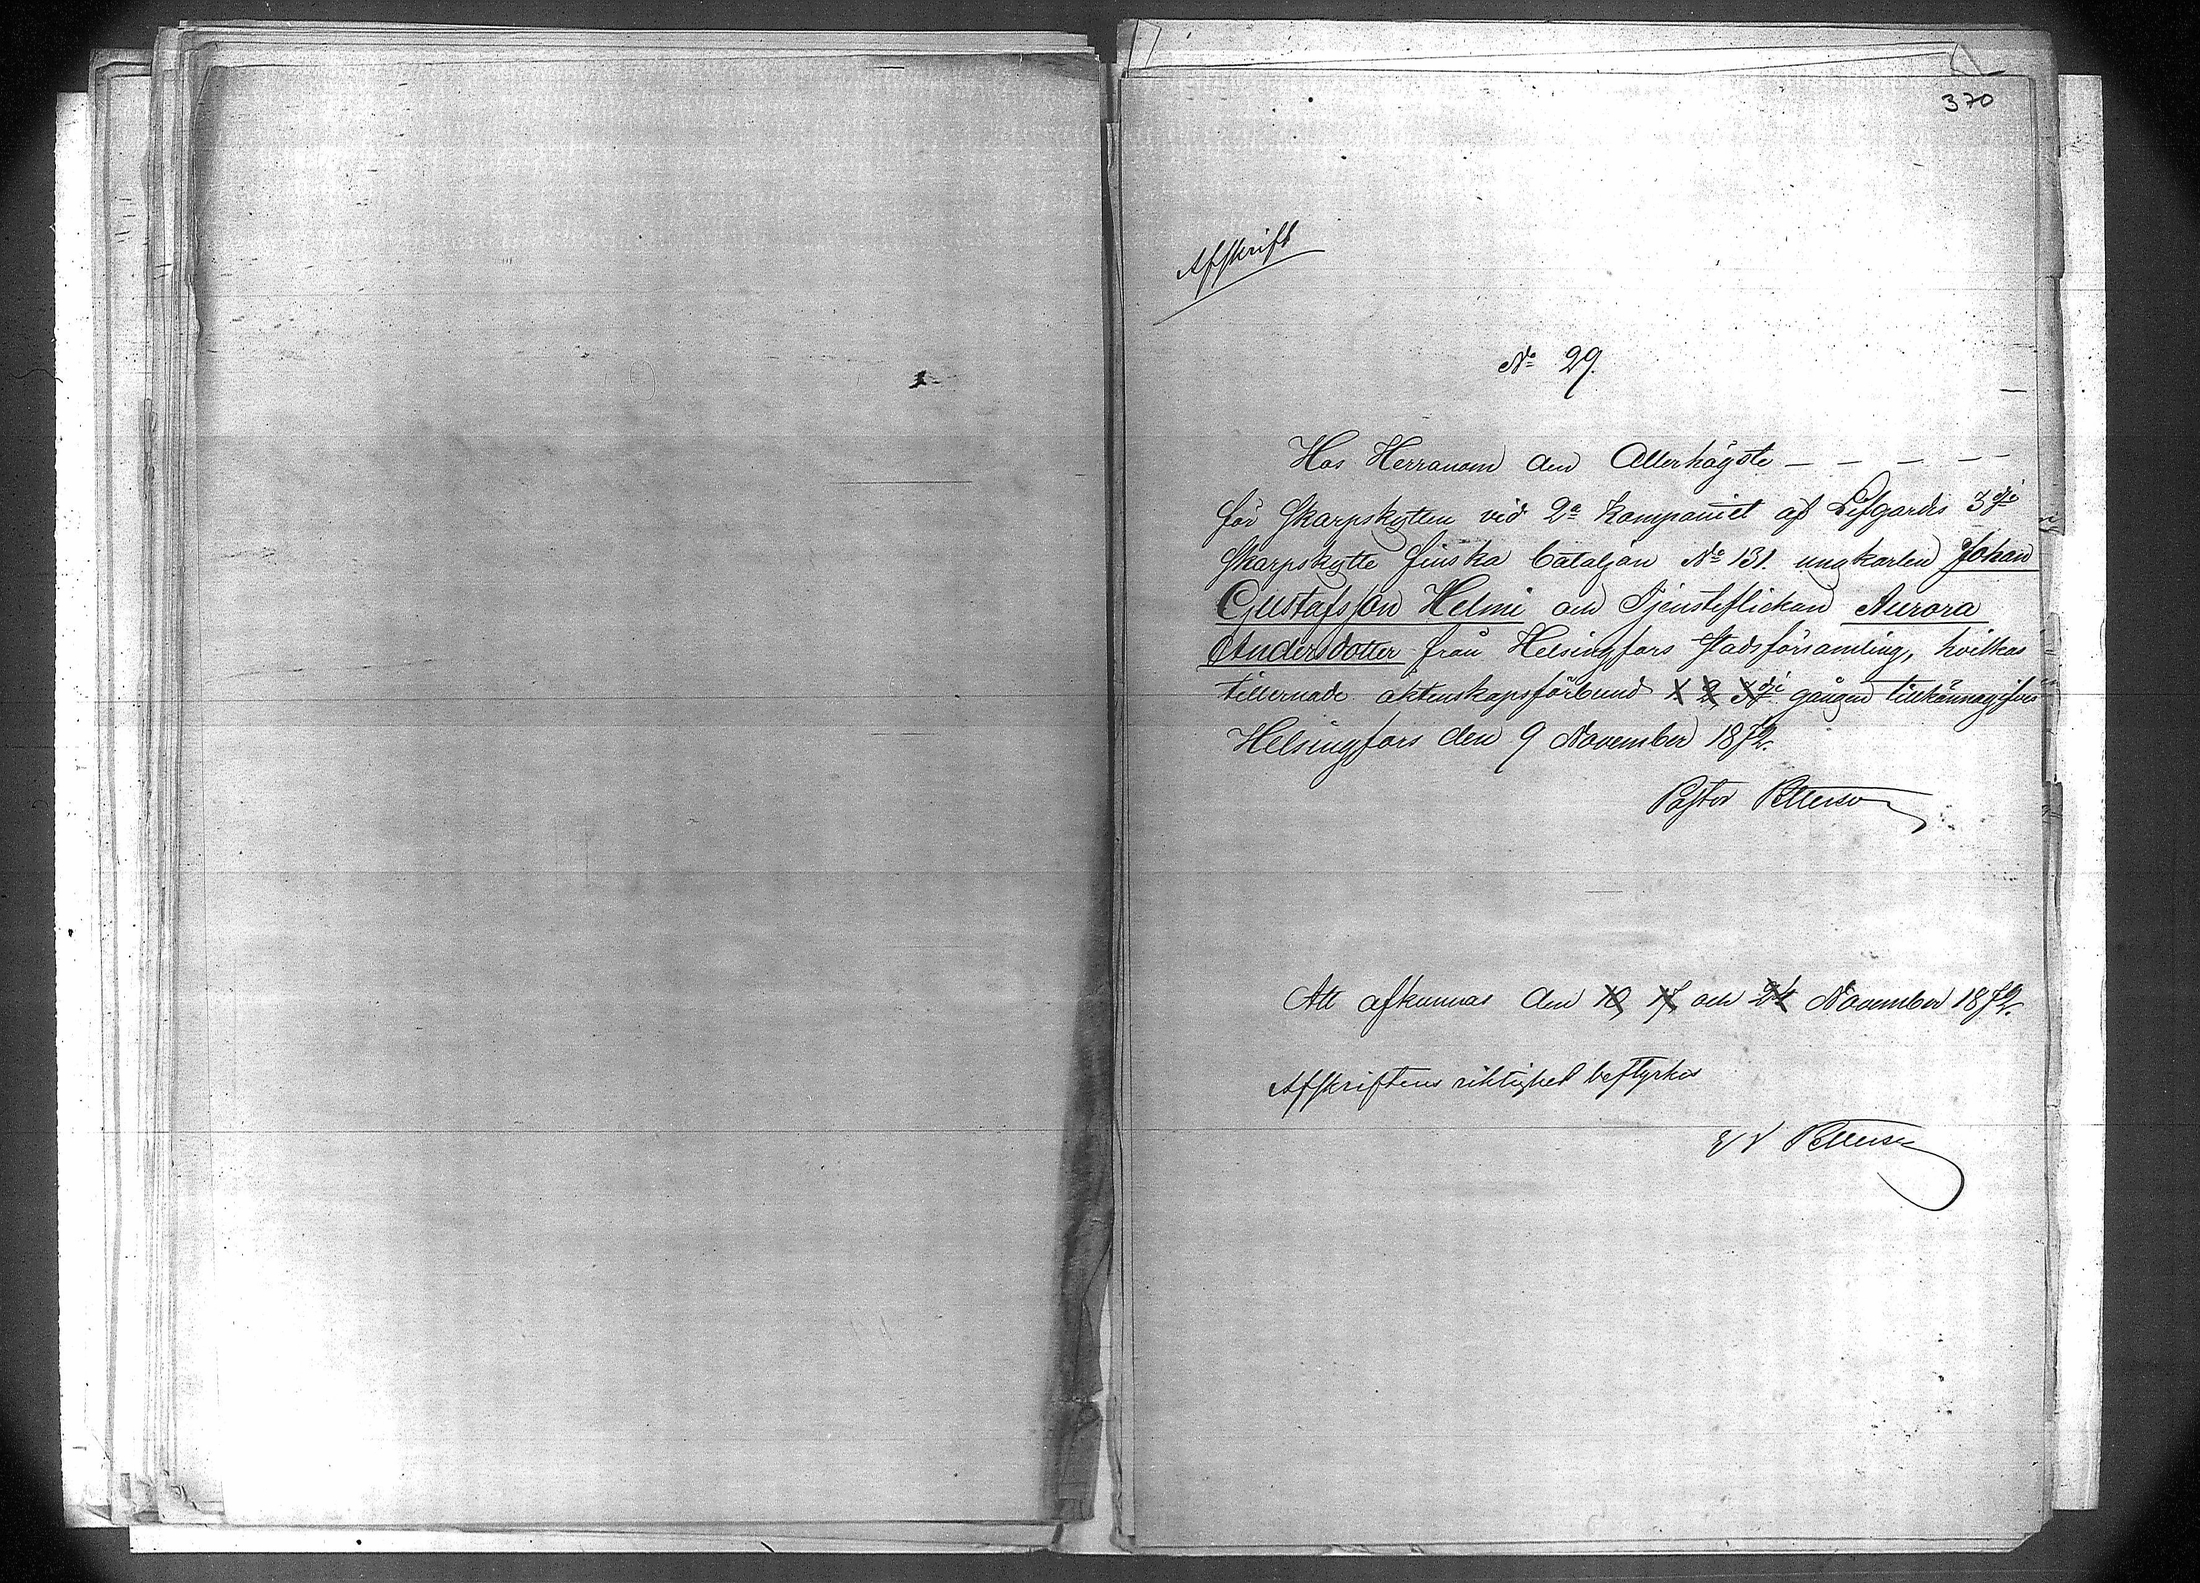 370
Afskrift
No 29.
Hos Herranom den Allerhögste – – – – –
för Skarpskytten vid 2a Kompaniet af Lifgardes 3dje
Skarpskytte finska bataljon No 131. ungkarlen Johan
Gustafsson Helmi och Tjensteflickan Aurora
Andersdotter från Helsingfors Stadsförsamling, hvilkas
tillernade äktenskapsförbund 1 2 3dje gången tillkännagifves
Helsingfors den 9 November 1872.
Pastor Petterson
Att afkunnas den 10, 17, och 24 November 1872.
Afskriftens riktighet bestyrkes
Petterson